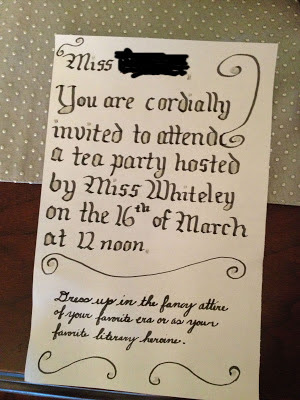 Miss
You are cordially
invited to attend
a tea party hosted
by Miss Whiteley
on the 16th of March
at 12 noon.
Dress up in the fancy attire
of your favorite era or as your
favorite literary heroine.